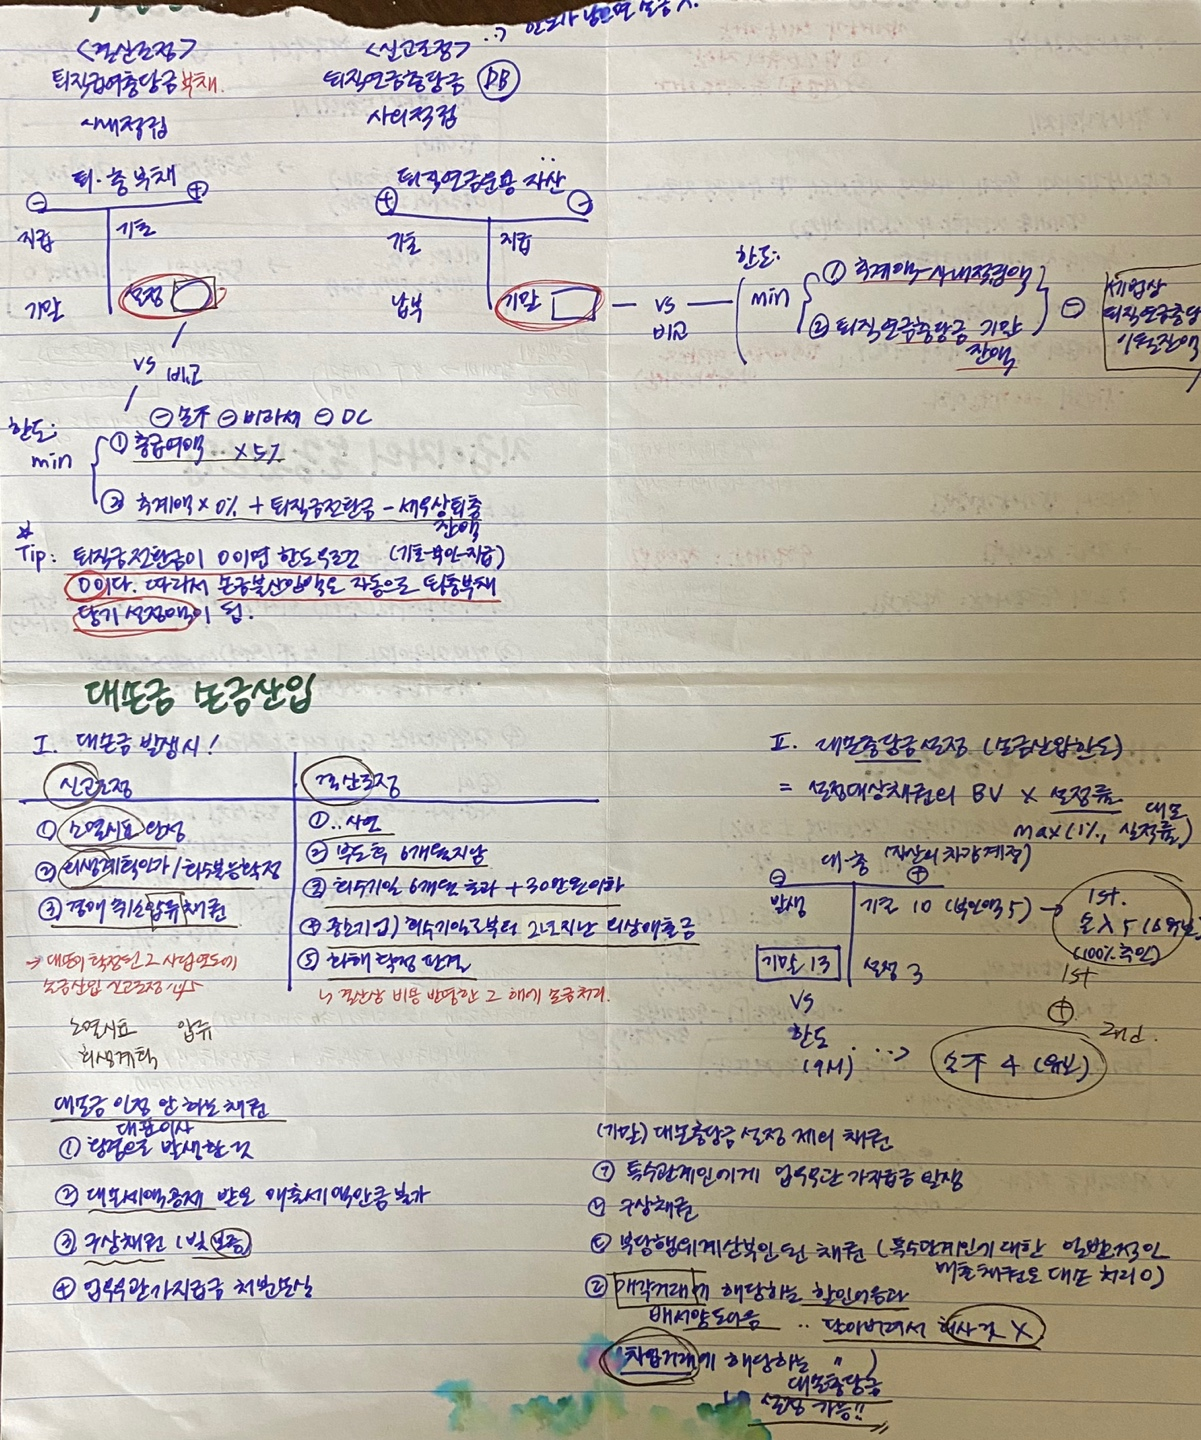 <결산조정>
퇴직급여충당금부채.
사내적립
<신고조정>
퇴직연금충당금 (DB)
사외적립
∵> 한도가 남으면 손금 X.
퇴·충부채
⊖ ⊕
지급 기초
기말 설정
퇴직연금운용 자산
⊕ ⊖
기초 지급
납부 기말
vs
비교
한도:
min
① 추계액-사내적립액
② 퇴직연금충당금 기말
잔액
⊖
세법상
퇴직연금충당
이월잔액
vs 비교
⊖ 손不 ⊖ 비과세 ⊖ DC
한도:
min
① 총급여액 ×5%
② 추계액×0% + 퇴직금전환금 - 세무상퇴충
잔액
(기초-부인-지급)
☆
Tip: 퇴직금전환금이 0이면 한도무조건
0이다. 따라서 손금불산입액도 자동으로 퇴충부채
당기 설정액이 됨.
대손금 손금산입
I. 대손금 발생시!
신고조정
① 소멸시효 완성
② 회생계획인가/회수불능확정
③ 경매 취소압류채권
→ 대손이 확정된 그 사업연도에
손금산입 신고조정 가능
소멸시효 압류
회생계획
결산조정
① .. 사연
② 부도후 6개월지남
③ 회수기일 6개월 초과 + 30만원이하
④ 중소기업) 회수기일로부터 2년지난 외상매출금
⑤ 화해 확정 판결
↳ 결산상 비용 반영한 그 해에 손금처리.
대손금 인정 안 하는 채권
대표이사
① 횡령으로 발생한 것
② 대손세액공제 받은 매출세액만큼 불가
③ 구상채권 (빚 보증)
④ 업무무관가지급금 처분손실
Ⅱ. 대손충당금설정 (손금산입한도)
= 설정대상채권의 BV × 설정률
대손
max(1%, 실적률)
대·충 (자산의 차감계정)
⊖ ⊕
발생 기초 10 (부인액 5) →
1st.
손入 5 (△유보)
(100% 추인)
기말 13 설정 3
vs
한도
(9시) ∴ →
1st
⊕
2nd.
손不 4 (유보)
(기말) 대손충당금 설정 제외 채권
㉠ 특수관계인에게 업무무관 가지급금 발생
㉡ 구상채권
㉢ 부당행위계산부인된 채권 (특수관계인에 대한 일반적인
매출채권은 대손 처리 O)
㉣ 매각거래에 해당하는 할인어음과
배서양도어음 ∵ 팔아버려서 회사것 X
(차입거래에 해당하는 〃 )
대손충당금
↳ 설정 가능!!